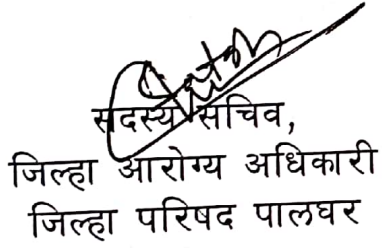 सदस्य सचिव,
जिल्हा आरोग्य अधिकारी
जिल्हा परिषद पालघर